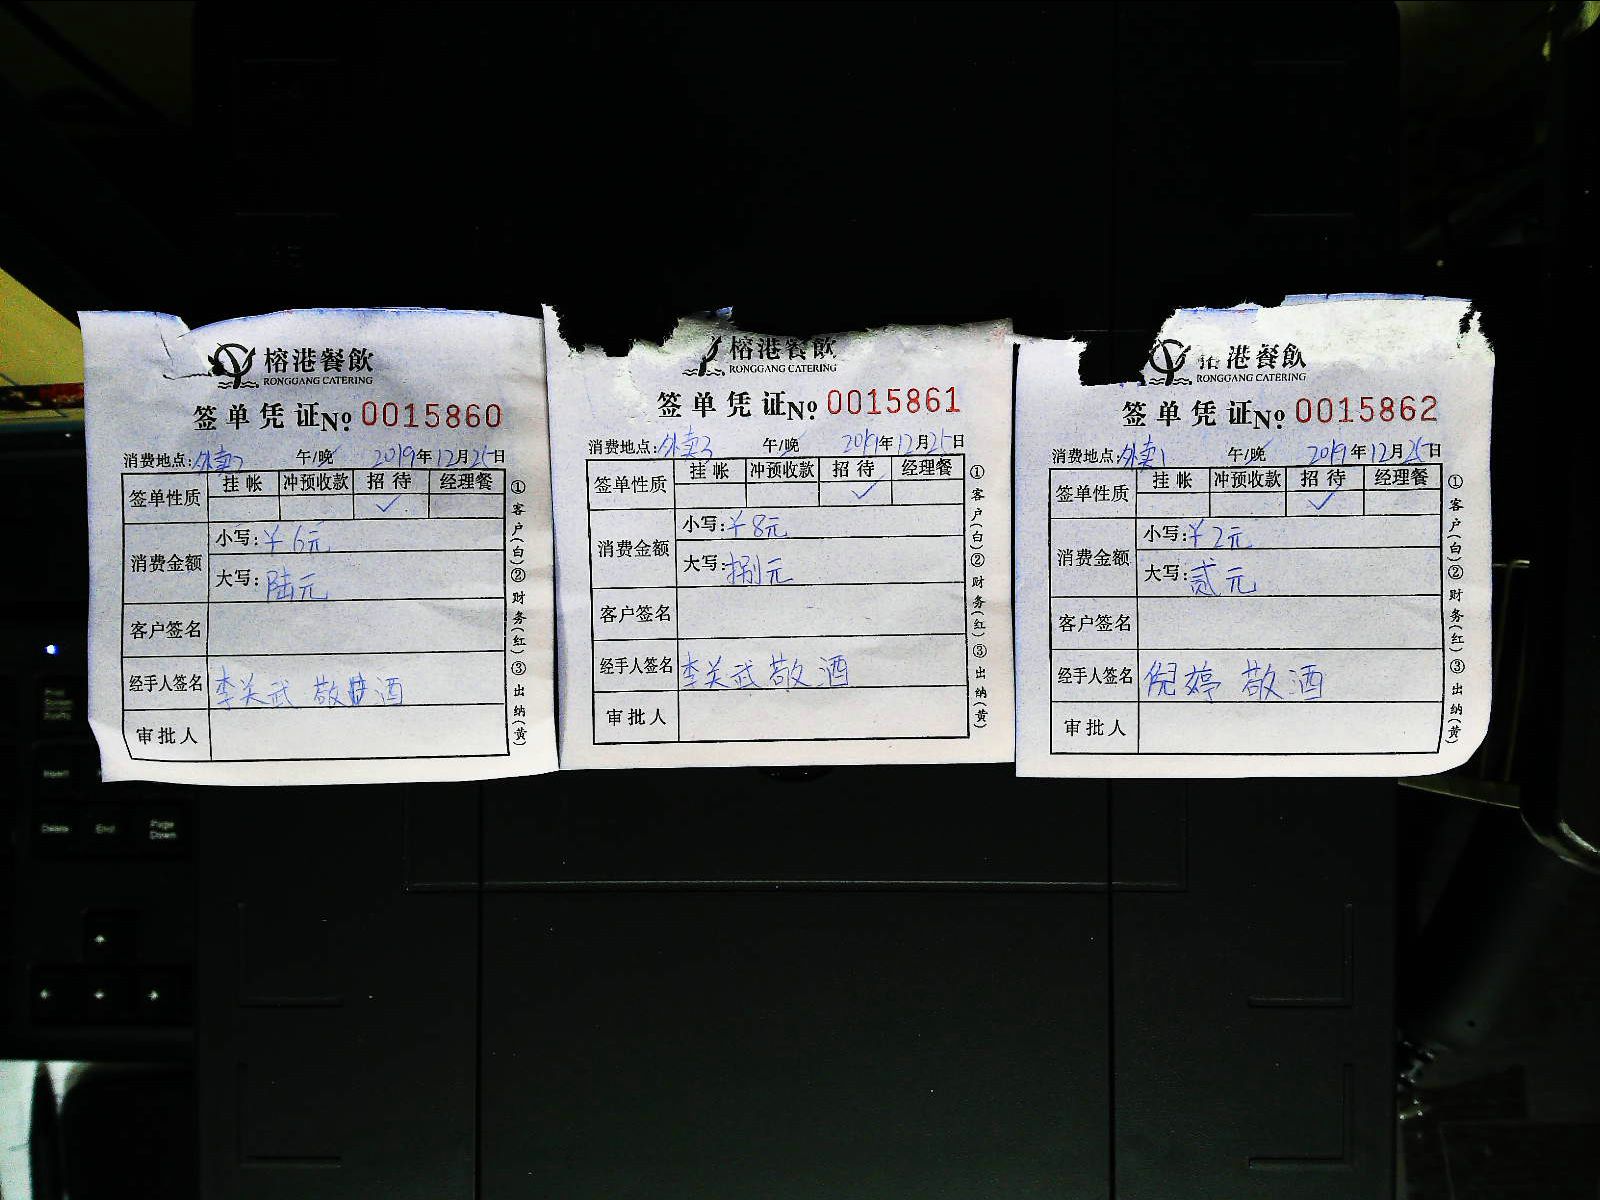 榕港餐飲
RONGGANG CATERING
签单凭证 No 0015860
消费地点: 外卖2 午/晚 2019年12月25日
签单性质 挂帐 冲预收款 招待 经理餐
✓
消费金额
小写: ¥6元
大写: 陆元
客户签名
经手人签名 李关武 敬酒
审批人
①客户(白)②财务(红)③出纳(黄)
榕港餐飲
RONGGANG CATERING
签单凭证 No 0015861
消费地点: 外卖3 午/晚 2019年12月25日
签单性质 挂帐 冲预收款 招待 经理餐
✓
消费金额
小写: ¥8元
大写: 捌元
客户签名
经手人签名 李关武 敬酒
审批人
①客户(白)②财务(红)③出纳(黄)
港餐飲
RONGGANG CATERING
签单凭证 No 0015862
消费地点: 外卖1 午/晚 2019年12月25日
签单性质 挂帐 冲预收款 招待 经理餐
✓
消费金额
小写: ¥2元
大写: 贰元
客户签名
经手人签名 倪婷 敬酒
审批人
①客户(白)②财务(红)③出纳(黄)
Insert
Delete End Page Down